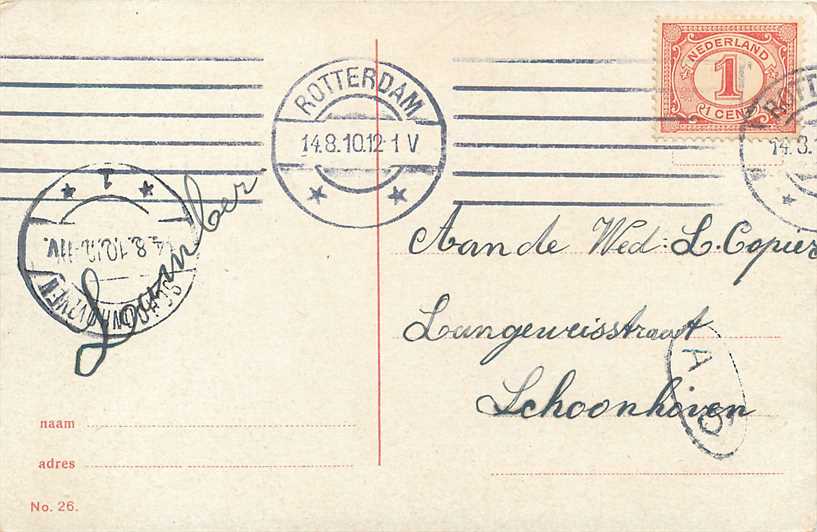 NEDERLAND
1
1 CENT
ROTTERDAM
14.8.10.12-1 V
ROTTERDAM
14.8.1
1
4.8.10.12-1V.
SCHOONHOVEN
Aan de Wed: L. Copier
Langeweisstraat
Schoonhoven
A
naam
adres
No. 26.